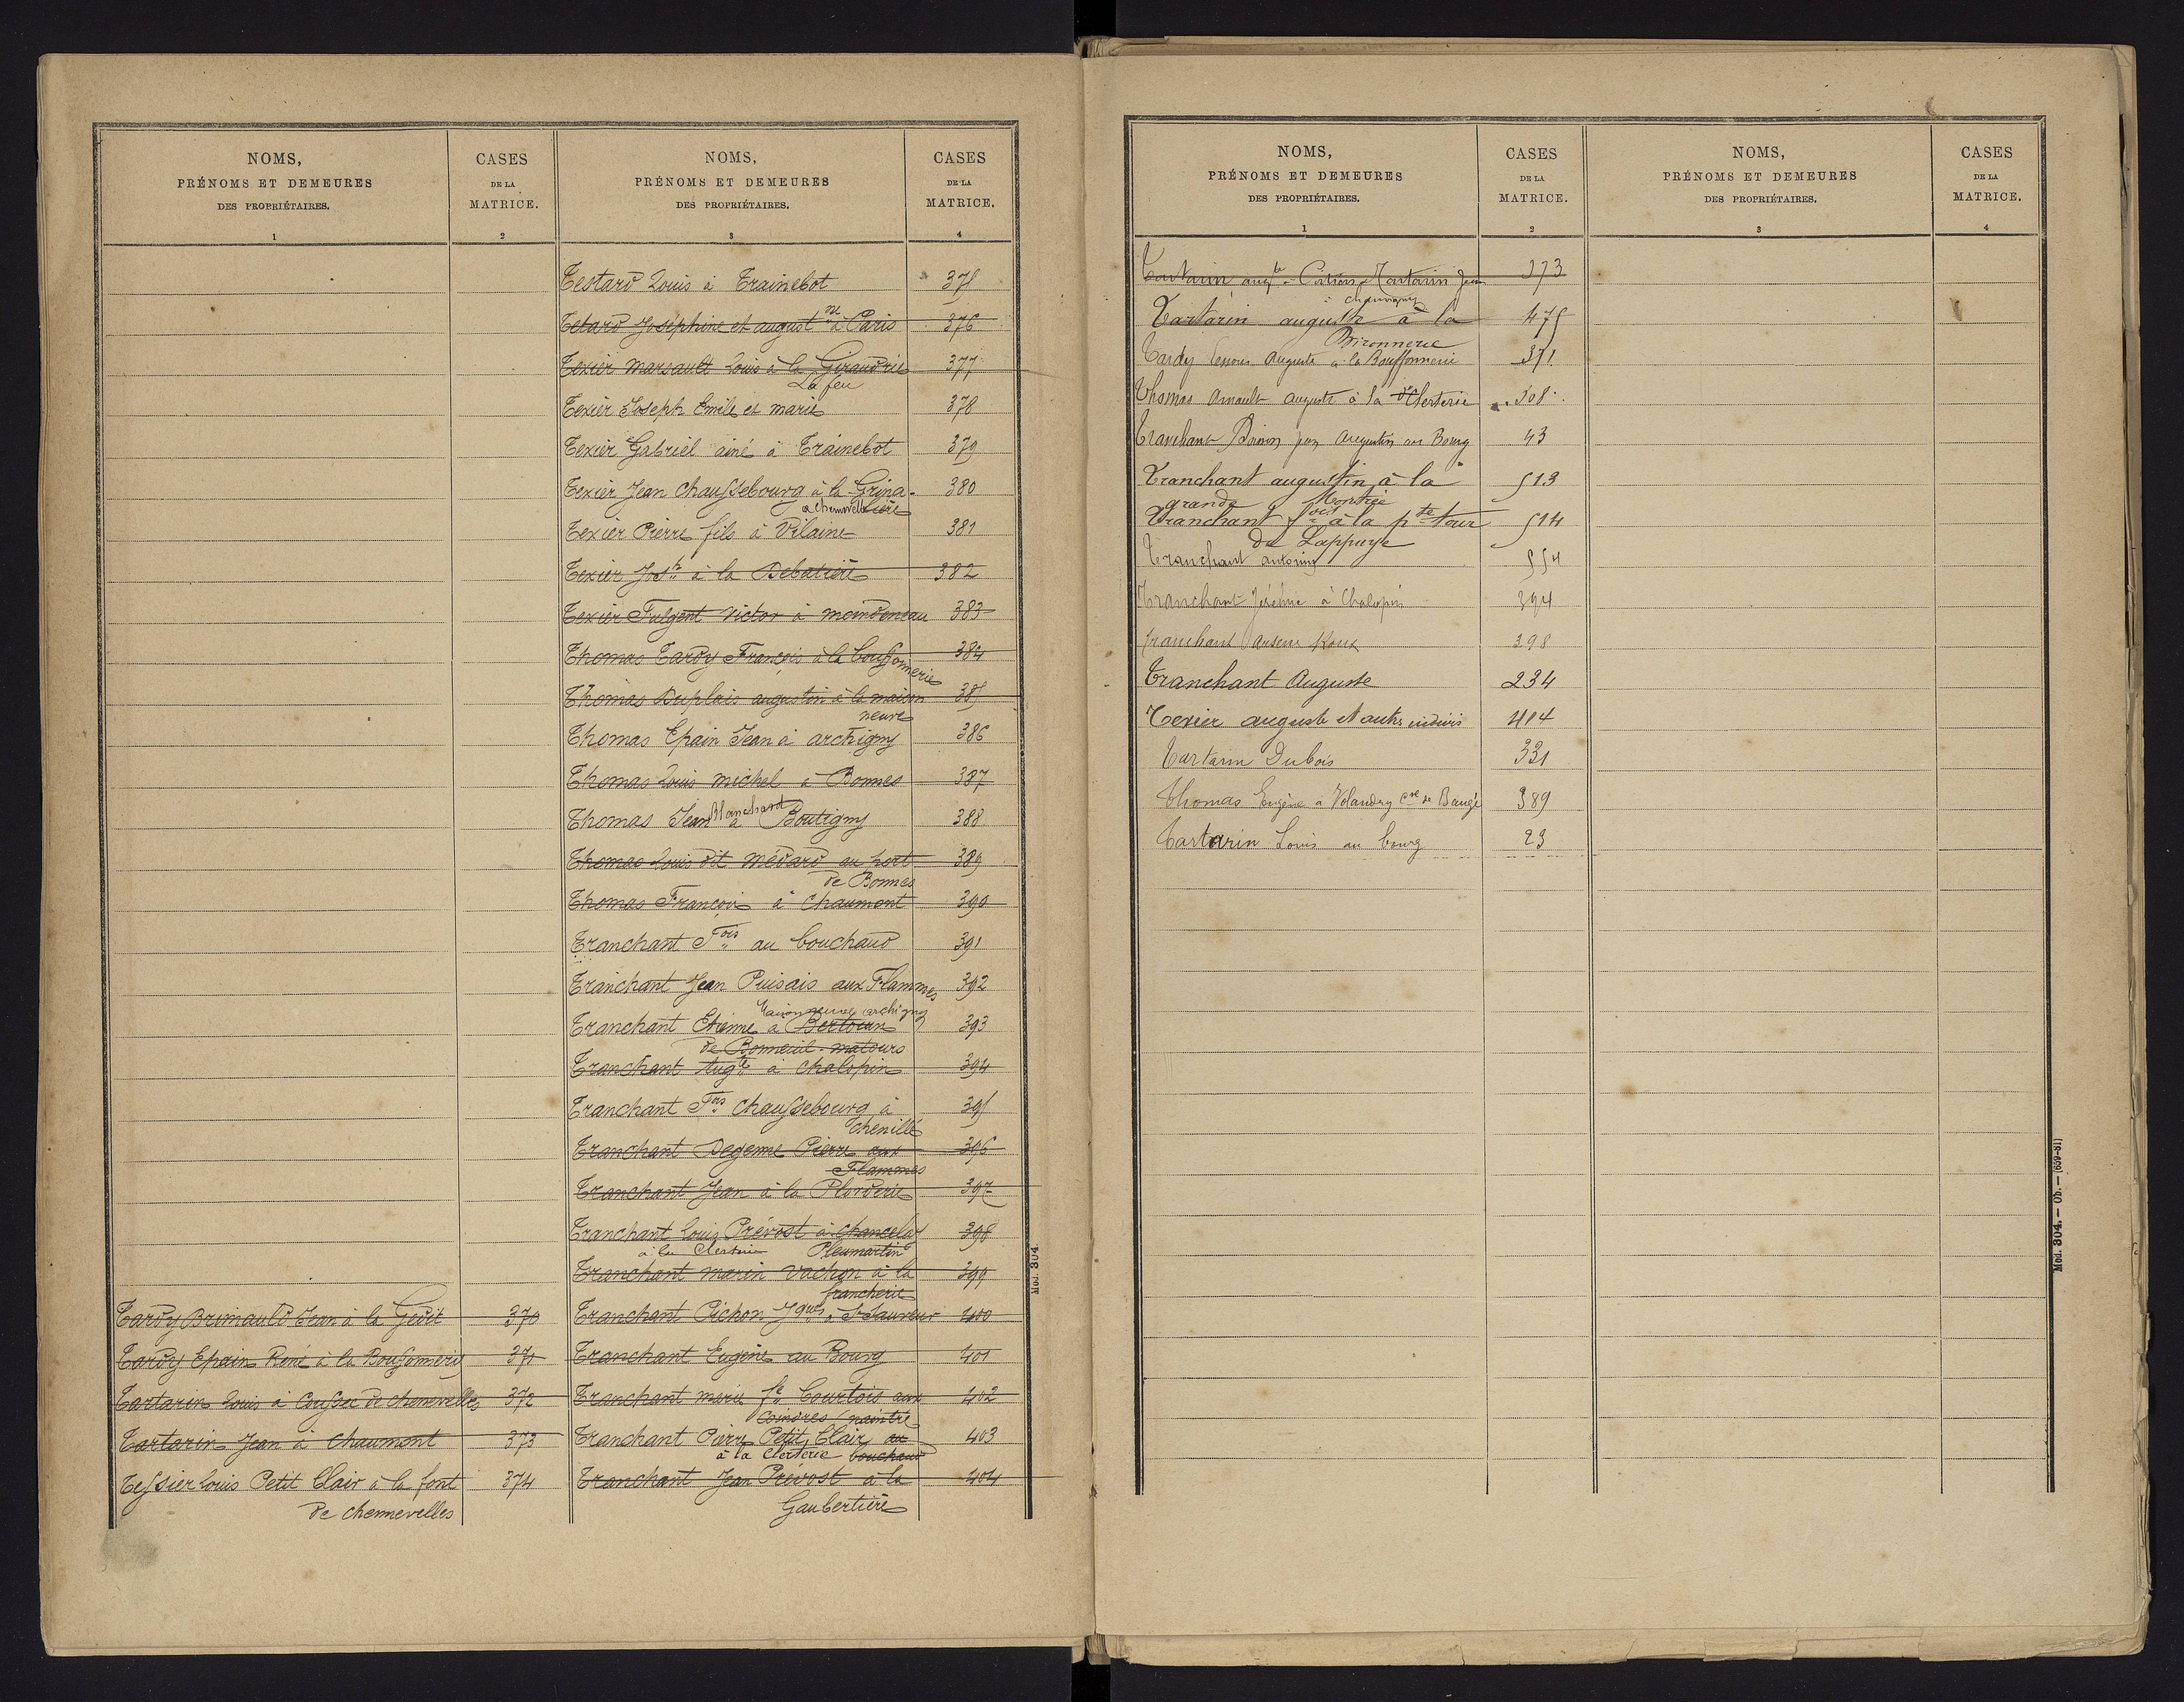 NOMS,
PRÉNOMS ET DEMEURES
DES PROPRIÉTAIRES.
1
CASES
DE LA
MATRICE.
2
Tardy Brunauld Jean à la Gedit 370
Tardy Epain René à la Bouffonnerie 371
Tartarin Louis à Coussec de chenevelles 372
Tartarin Jean à Chaumont 373
Tessier Louis Petit Clair à la font 374
de chennevelles
NOMS,
PRÉNOMS ET DEMEURES
DES PROPRIÉTAIRES.
3
CASES
DE LA
MATRICE.
4
Testard Louis à Trainebot 375
Tetard Joséphine et august ne à Paris 376
Texier Marsault Louis à la Giraudrie 377
La feu
Texier Joseph Emile et marie 378
Texier Gabriel ainé à Trainebot 379
Texier Jean Chaussebourg à la Grina- 380
à chennevelles lière
Texier Pierre fils à Vilaine 381
Texier Josh à la Debatière 382
Texier Fulgent Victor à moindeneau 383
Thomas Tardy François à la bouffonnerie 384
Thomas Duplais augustin à la maison 385
neuve
Thomas Epain Jean à archigny 386
Thomas Louis Michel à Bonnes 387
Thomas Jean Blanchard à Boutigny 388
Thomas Louis dit Médard au port 389
de Bonnes
Thomas François à Chaumont 390
Tranchant Fois au bouchaud 391
Tranchant Jean Puisais aux Flammes 392
Maison neuve archigny
Tranchant Etienne à Bertouan 393
de Bonneuil-matours
Tranchant Augte à Chalopin 394
Tranchant Fois Chaussebourg à 395
Chenillé
Tranchant Degenne Pierre aux 396
Flammes
Tranchant Jean à la Plorderie 397
Tranchant Louis Prévost à Chancelay 398
à la Clerterie Pleumartin
Tranchant Marin Vachon à la 399
francherie
Tranchant Pichon Jques à St Sauveur 400
Tranchant Eugène au Bourg 401
Tranchant marie fe Courtois aux 402
Coindres (naintré
Tranchant Pierre Petit Clair au 403
à la Clerterie bouchaud
Tranchant Jean Prévost à la 404
Gaubertière
Mod. 304.
NOMS,
PRÉNOMS ET DEMEURES
DES PROPRIÉTAIRES.
1
CASES
DE LA
MATRICE.
2
Tartarin augte Tartarin Jean 373
à chauvigny
Tartarin auguste à la 475
Bironnerie
Tardy auguste à la Bouffonnerie 371
Thomas Arnault auguste à la Clerterie 308
Tranchant augustin au Bourg 43
Tranchant augustin à la 513
grande Montrée
Tranchant fois à la pte tour 514
de Lappuye
Tranchant antonin 554
Tranchant Jérémie à Chalopin 394
Tranchant Arsene Roux 398
Tranchant Auguste 234
Texier auguste et autres indivis 414
Tartarin Dubois 331
Thomas Eugène à Volandry Cne de Baugé 389
Tartarin Louis au bourg 23
NOMS,
PRÉNOMS ET DEMEURES
DES PROPRIÉTAIRES.
3
CASES
DE LA
MATRICE.
4
Mod. 304. — Ob. — (659-81)